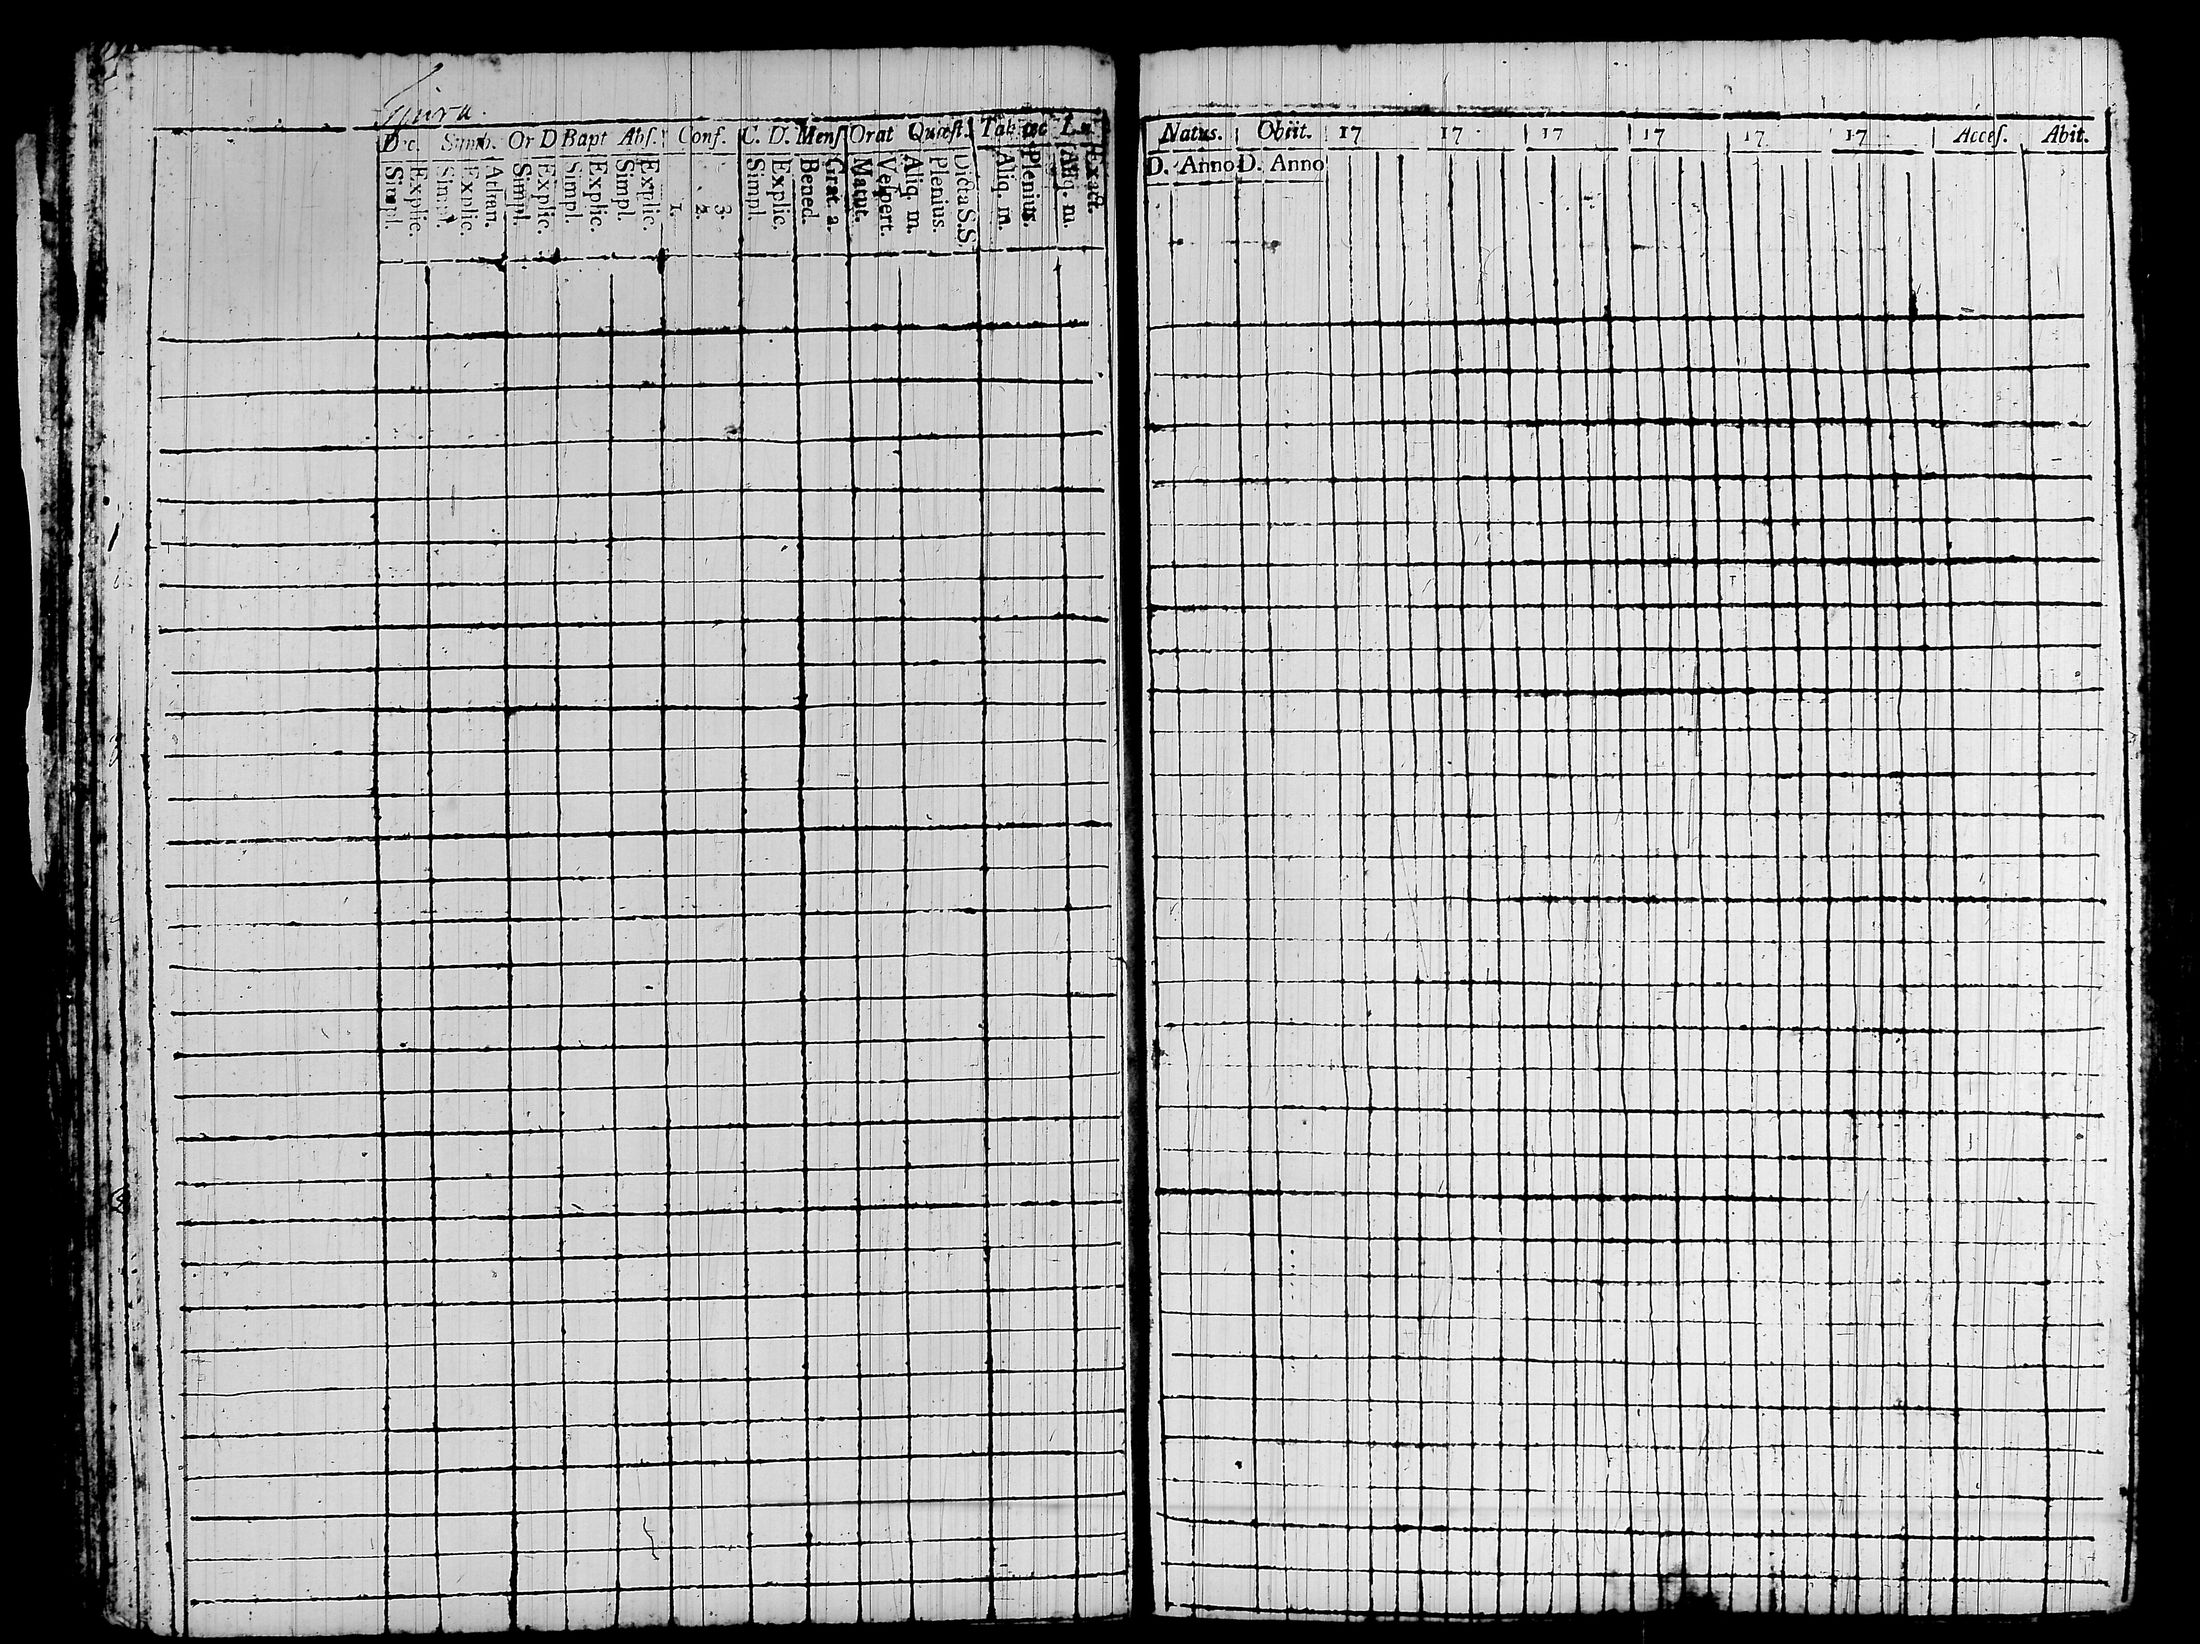 D.c. Symb. Or D Bapt Abs. Conf. C. D. Mens Orat Quæst. Tab œc L.
Simpl. Explic. Simpl. Explic. Athan. Simpl. Explic. Simpl. Explic. Simpl. Explic. 1. 2. 3. Simpl. Explic. Bened. Grat. a. Matut. Vespert. Aliq. m. Plenius. Dicta S.S. Aliq. m. Plenius. Aliq. m. Exact.
Natus. Obiit. 17 17 17 17 17 17 Acces. Abit.
D. Anno D. Anno